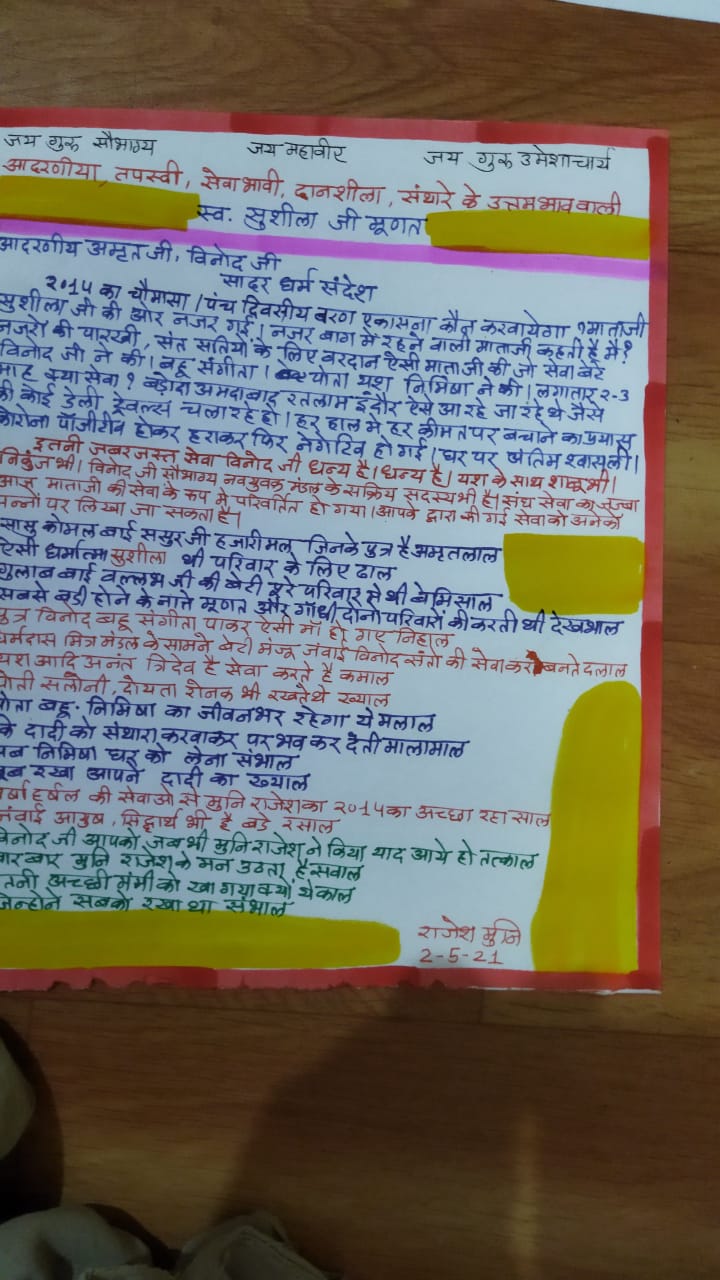 जय गुरु सौभाग्य जय महावीर जय गुरु उमेशाचार्य
आदरणीया, तपस्वी, सेवाभावी, दानशीला, संथारे के उत्तम भाव वाली
स्व. सुशीला जी मूणत
आदरणीय अमृत जी, विनोद जी
सादर धर्म संदेश
2014 का चौमासा। पंच दिवसीय वरण एकासना कौन करवायेगा ? माताजी
सुशीला जी की ओर नजर गई। नजर बाग में रहने वाली माताजी कहती है मैं?
नजरों की पारखी, संत सतियों के लिए वरदान ऐसी माताजी की जो सेवा बेटे
विनोद जी ने की। बहू संगीता। पोता यश निमिषा ने की। लगातार 2-3
माह क्या सेवा ? बड़ोदा अमदाबाद रतलाम इंदौर ऐसे आ रहे जा रहे थे जैसे
की कोई डेली ट्रेवल्स चला रहे हो। हर हाल में हर कीमत पर बचाने का प्रयास
कोरोना पॉजीटीव होकर हराकर फिर नेगेटिव हो गई। घर पर अंतिम श्वास ली।
इतनी जबरजस्त सेवा विनोद जी धन्य है। धन्य है। यश के साथ शब्बू भी।
निकुंज भी। विनोद जी सौभाग्य नवयुवक मंडल के सक्रिय सदस्य भी है। संघ सेवा का जज्बा
आज माताजी की सेवा के रूप में परिवर्तित हो गया। आपके द्वारा की गई सेवा को अनेकों
पन्नों पर लिखा जा सकता है।
सासु कोमल बाई ससुर जी हजारीमल जिनके पुत्र है अमृतलाल
ऐसी धर्मात्मा सुशीला थी परिवार के लिए ढाल
गुलाब बाई वल्लभ जी की बेटी पूरे परिवार में थी बेमिसाल
सबसे बड़ी होने के नाते मूणत और गांधी दोनों परिवारों की करती थी देखभाल
पुत्र विनोद बहू संगीता पाकर ऐसी माँ हो गए निहाल
धर्मदास मित्र मंडल के सामने बेटी मंजू जंवाई विनोद संतो की सेवा कर बनते दलाल
यश आदि अनंत त्रिदेव है सेवा करते है कमाल
पोती सलोनी, दोयता रौनक भी रखते थे ख्याल
पोता बहू निमिषा का जीवनभर रहेगा ये मलाल
के दादी को संथारा करवाकर पर भव कर देती मालामाल
अब निमिषा घर को लेना संभाल
खूब रखा आपने दादी का ख्याल
हर्षल की सेवाओं से मुनि राजेश का 2014 का अच्छा रहा साल
जंवाई आयुष, सिद्धार्थ भी है बड़े रसाल
विनोद जी आपको जब भी मुनि राजेश ने किया याद आये हो तत्काल
बार बार मुनि राजेश के मन उठता है सवाल
इतनी अच्छी मम्मी को खा गया क्यों ये काल
जिन्होंने सबको रखा था संभाल
राजेश मुनि
2-5-21